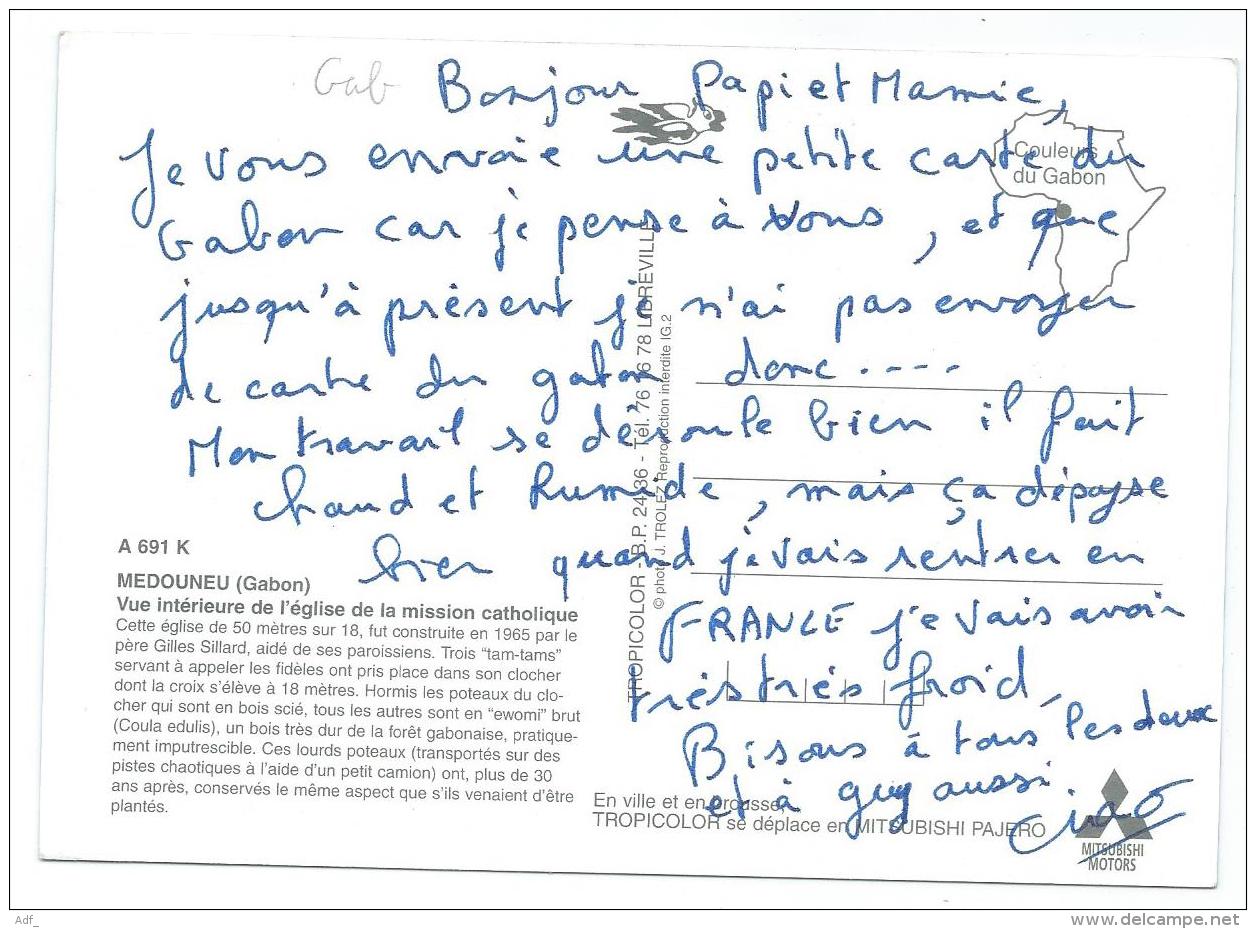 Gab
Bonjour Papi et Mamie,
Je vous envoie une petite carte du
Gabon car je pense à vous, et que
jusqu'à présent je n'ai pas envoyer
de carte du gabon donc ....
Mon travail se déroule bien il fait
chaud et humide, mais ça dépayse
bien quand je vais rentrer en
FRANCE je vais avoir
très très froid,
Bisous à tous les deux
et à guy aussi.
ciao
Couleurs
du Gabon
TROPICOLOR - B.P. 24 36 - Tél. 76 76 78 LIBREVILLE
© photo J. TROLEZ Reproduction interdite IG.2
A 691 K
MEDOUNEU (Gabon)
Vue intérieure de l'église de la mission catholique
Cette église de 50 mètres sur 18, fut construite en 1965 par le
père Gilles Sillard, aidé de ses paroissiens. Trois "tam-tams"
servant à appeler les fidèles ont pris place dans son clocher
dont la croix s'élève à 18 mètres. Hormis les poteaux du clo-
cher qui sont en bois scié, tous les autres sont en "ewomi" brut
(Coula edulis), un bois très dur de la forêt gabonaise, pratique-
ment imputrescible. Ces lourds poteaux (transportés sur des
pistes chaotiques à l'aide d'un petit camion) ont, plus de 30
ans après, conservés le même aspect que s'ils venaient d'être
plantés.
En ville et en brousse,
TROPICOLOR se déplace en MITSUBISHI PAJERO
MITSUBISHI
MOTORS
Adf_
www.delcampe.net